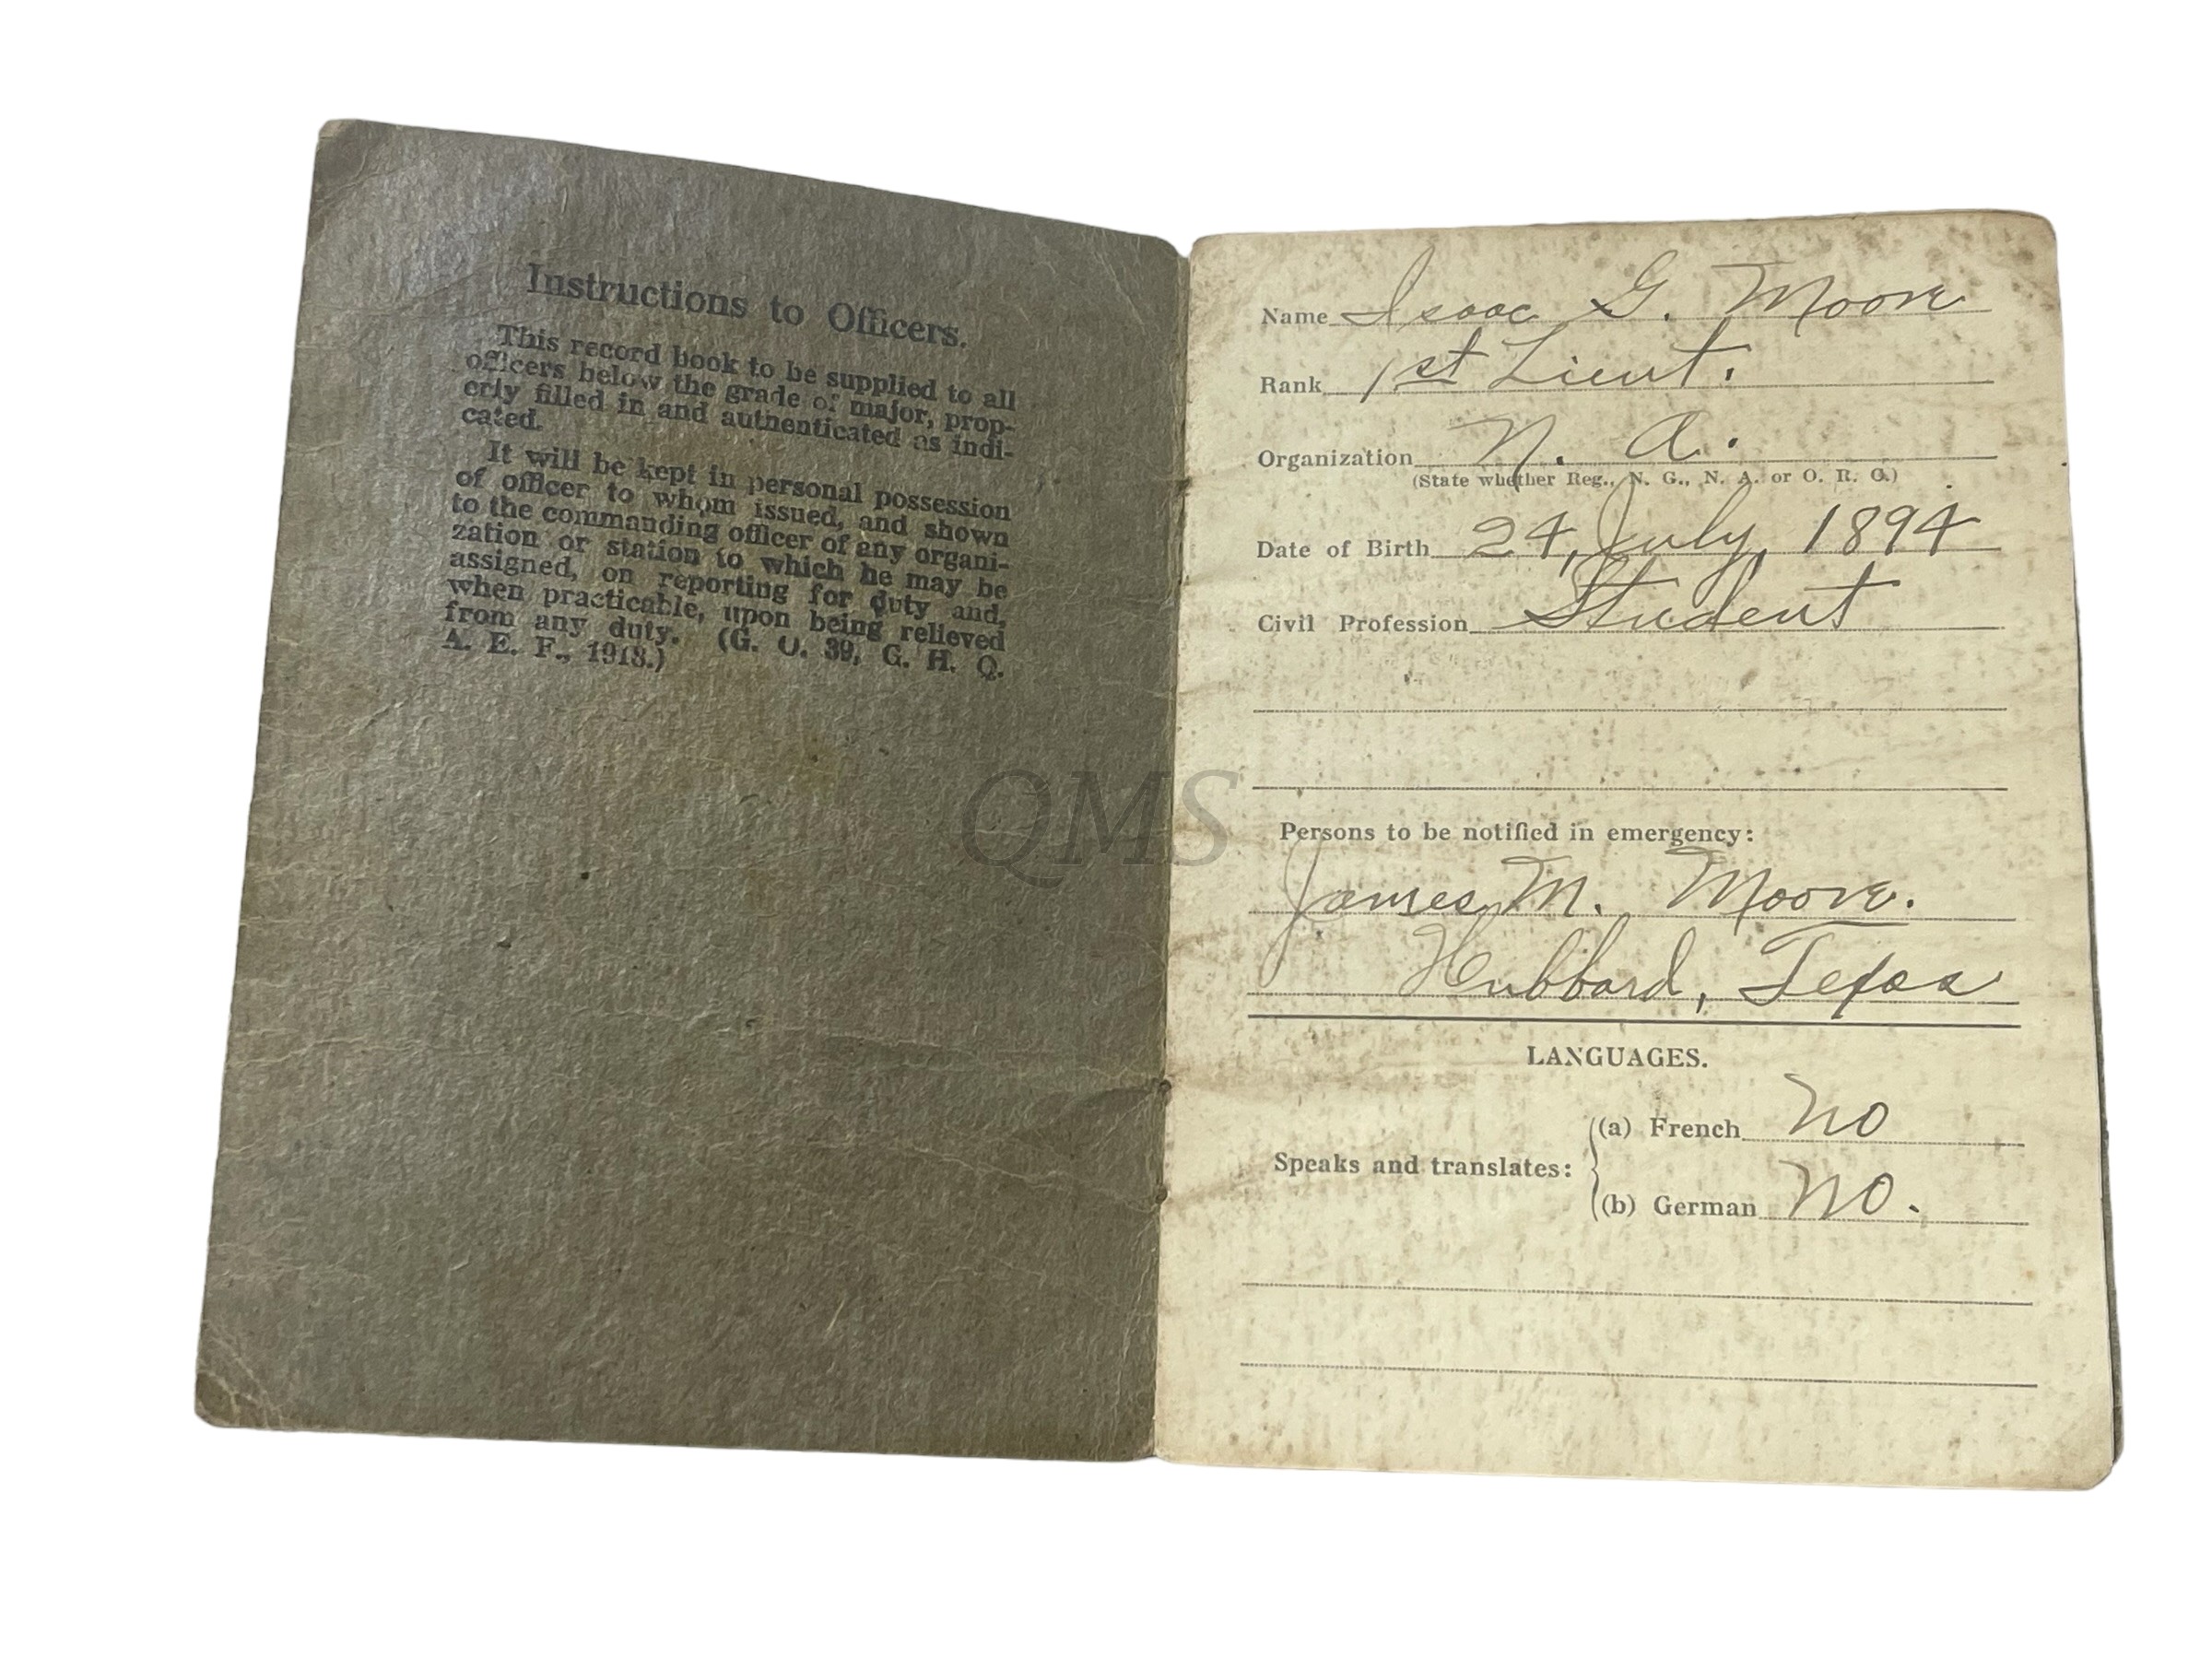 Instructions to Officers.
This record book to be supplied to all
officers below the grade of major, prop-
erly filled in and authenticated as indi-
cated.
It will be kept in personal possession
of officer to whom issued, and shown
to the commanding officer of any organi-
zation or station to which he may be
assigned, on reporting for duty and,
when practicable, upon being relieved
from any duty. (G. O. 39, G. H. Q.
A. E. F., 1918.)
Name Isaac G. Moore
Rank 1st Lieut.
Organization N. A.
(State whether Reg., N. G., N. A. or O. R. C.)
Date of Birth 24, July, 1894
Civil Profession Student
Persons to be notified in emergency:
James M. Moore.
Hubbard, Texas
LANGUAGES.
Speaks and translates:
(a) French No
(b) German No.
QMS